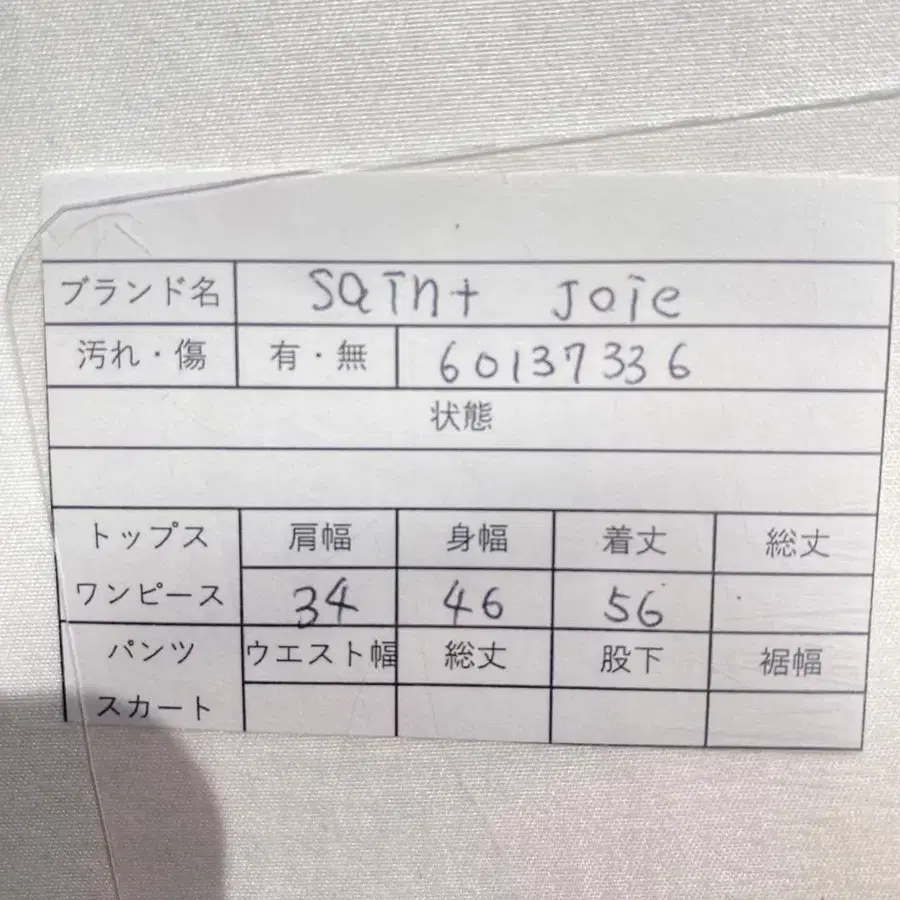 ブランド名 saint Joie
汚れ・傷 有・無 60137336
状態
トップス 肩幅 身幅 着丈 総丈
ワンピース 34 46 56
パンツ ウエスト幅 総丈 股下 裾幅
スカート